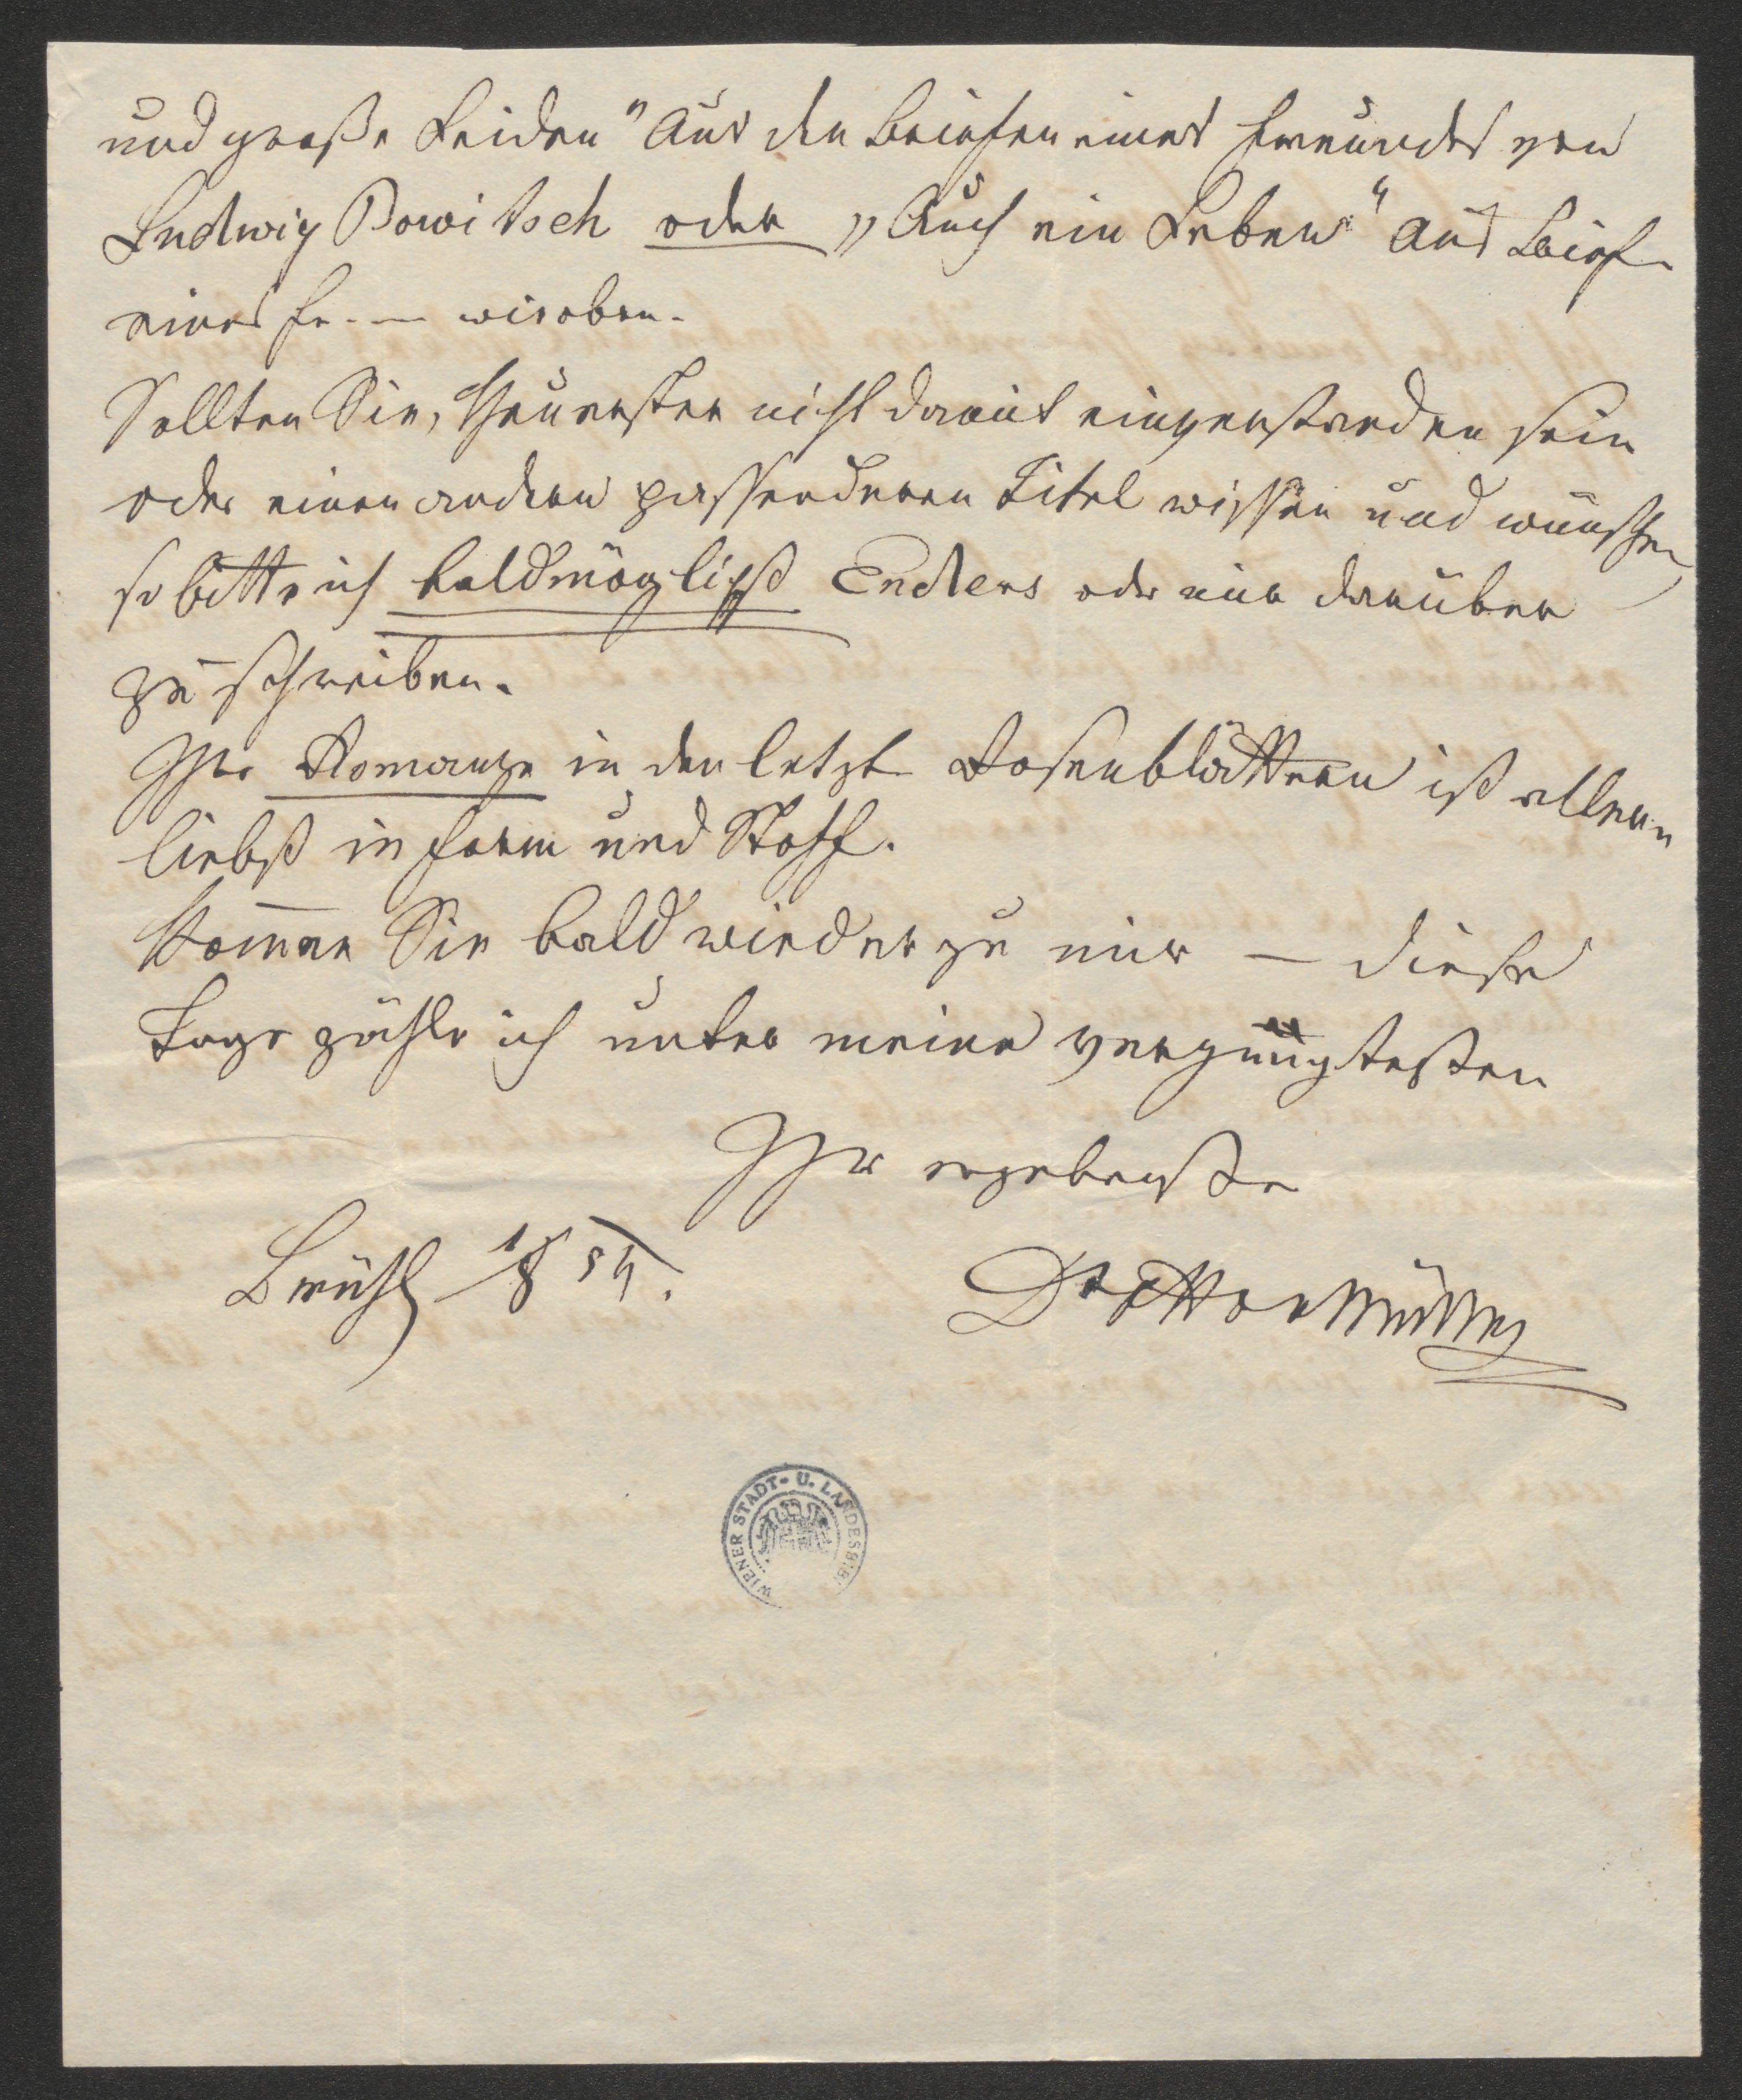 und große Leiden" Aus den Briefen eines Freundes von
Ludwig Bowitsch oder „Auch ein Leben" Aus Brief
eines Fr. — wie oben.
Sollten Sie, Theuerster nicht damit einverstanden sein
oder einen andern passenderen Titel wissen und wünschen
so bitte ich baldmöglichst Enders oder mir darüber
zu schreiben.
Ihre Romanze in den letzt Rosenblättern ist aller-
liebst in Form und Stoff.
Kom̅en Sie bald wieder zu mir — diese
Tage zähle ich unter meine vergnügtesten
Ihr ergebenster
Brühl 1854.
WIENER STADT- U. LANDESBIBL.